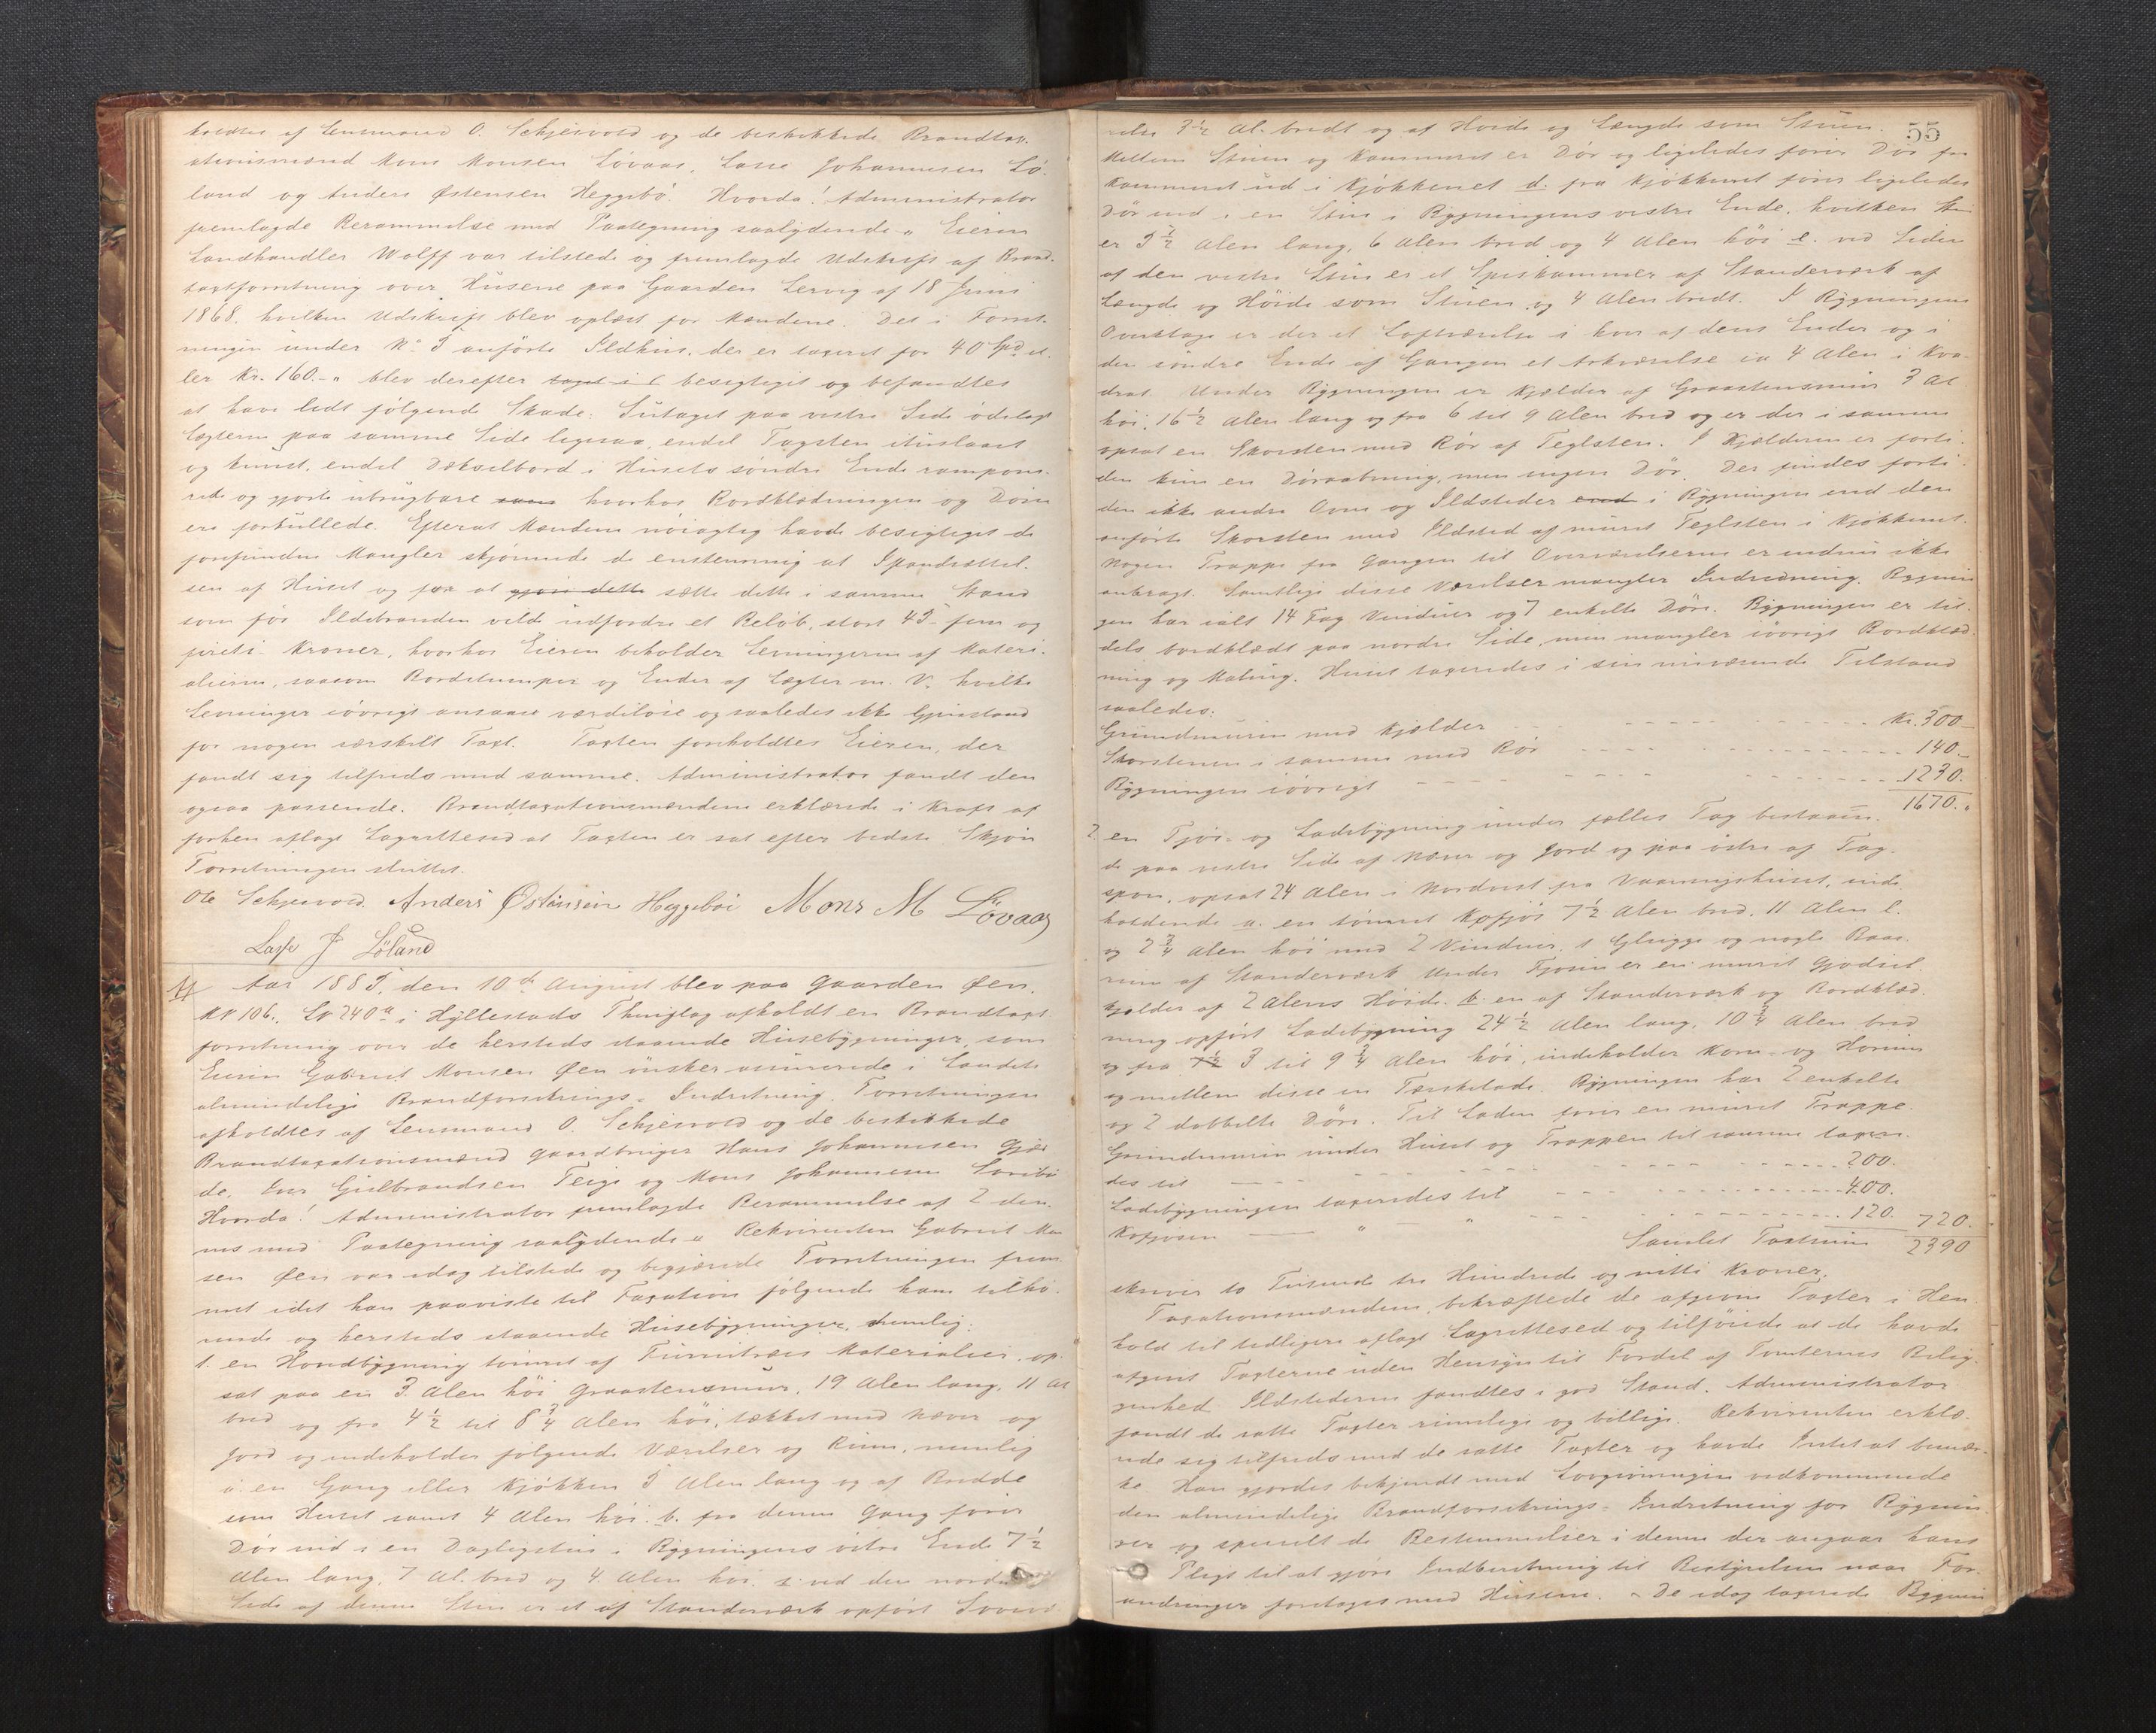 holdtes af Lensmand O. Schjesvold og de beskikkede Brandtax-
ationsmænd Mons Monsen Løvaas, Lasse Johannesen Lø-
land og Anders Østensen Heggebø. Hvorda! Administrator
fremlagde Berammelse med Paategning saalydende " Eieren
Landhandler Wolff var tilstede og fremlagde Udskrift af Brand-
taxtforretning over Husene paa Gaarden Lervig af 18 Juni
1868. hvilken Udskrift blev oplæst for Mændene. Det i Forret-
ningen under No 5 anførte Ildhus, der er taxeret for 40 Spd el-
ler Kr. 160.- " blev derefter taget i besigtiget og befandtes
at have lidt følgende Skade: Sutaget paa vestre Side ødelagt
Lægterne paa samme Side ligesaa, endel Tagsten ituslaaet
og knust, endel Dækselbord i Husets søndre Ende rampone-
rede og gjorte ubrugbare samt hvorhos Bordklædningen og Døren
ere forkullede. Efterat Mændene nöiagtig havde besigtiget de
forefundne Mangler skjønnede de enstemmig at Istandsættel-
sen af Huset og for at gjøre dette sætte dette i samme Stand
som før Ildebranden vilde udfordre et Beløb, stort 45 - fem og
fireti Kroner, hvorhos Eieren beholder Levningerne af Materi-
alierne, saasom Bordstumper og Ender af Lægter m. V. hvilke
Levninger iøvrigt ansaaes værdiløse og saaledes ikke Gjenstand
for nogen særskilt Taxt. Taxten foreholdtes Eieren, der
fandt sig tilfreds med samme. Administrator fandt den
ogsaa passende. Brandtaxationsmændene erklærede i Kraft af
forhen aflagt Lagrettesed at Taxten er sat efter bedste Skjøn
Forretningen sluttet.
Ole Schjesvold Anders Østensen Heggebøi Mons M Løvaas
Lasse J Løland
Aar 1885, den 10de August blev paa Gaarden Øen,
MN 106., LN 240a i Hyllestads Thinglag afholdt en Brandtaxt-
forretning over de hersteds staaende Husebygninger, som
Eieren Gabriel Monsen Øen ønsker assurerede i Landets
almindelige Brandforsikrings-Indretning. Forretningen
afholdtes af Lensmand O. Schjesvold og de beskikkede
Brandtaxationsmænd Gaardbruger Hans Johannesen Gjær-
de, Iver Gulbrandsen Teige og Mons Johannesen Sørebø
Hvorda! Administrator fremlagde Berammelse af 2 den-
nes med Paategning saalydende " Rekvirenten Gabriel Mon-
sen Øen var idag tilstede og begjærede Forretningen frem-
met idet han paaviste til Taxation følgende ham tilhø-
rende og hersteds staaende Husebygninger, nemlig:
1. en Hovedbygning tømret af Furutræes Materialier, op-
sat paa en 3 Alen høi Graastensmur, 19 Alen lang, 11 Al
bred og fra 4 1/2 til 8 3/4 Alen høi, tækket med Næver og
Jord og indeholder følgende Værelser og Rum, nemlig
a. en Gang eller Kjøkken 5 Alen lang og af Bredde
som Huset samt 4 Alen høi. b. fra denne Gang fører
Dør ind i en Dagligstue i Bygningens østre Ende 7 1/2
Alen lang, 7 Al. bred og 4 Alen høi. c. ved den nordre
Side af denne Stue er et af Standerværk opført Soveværel-
55
relse 3 1/2 Al. bredt og af Høide og Længde som Stuen.
Mellem Stuen og Kammeret er Dør og ligeledes fører Dør fra
Kammeret ud i Kjøkkenet d. fra Kjøkkenet fører ligeledes
Dør ind i en Stue i Bygningens vestre Ende, hvilken Stue
er 5 1/2 Alen lang, 6 Alen bred og 4 Alen høi e. ved Siden
af den vestre Stue er et Spiskammer af Standerværk af
Længde og Høide som Stuen og 4 Alen bredt. I Bygningens
Overetage er der et Loftværelse i hver af dens Ender og i
den søndre Ende af Gangen et Arkværelse ca 4 Alen i Kva-
drat. Under Bygningen er Kjælder af Graastensmur 3 Al
høi, 16 1/2 Alen lang og fra 6 til 9 Alen bred og er der i samme
opsat en Skorsten med Rør af Teglsten. I Kjælderen er forti-
den kun en Døraabning, men ingen Dør. Der findes forti-
den ikke andre Ovne og Ildsteder end i Bygningen end den
anførte Skorsten med Ildsted af muret Teglsten i Kjøkkenet.
Nogen Trappe fra Gangen til Overværelserne er endnu ikke
anbragt. Samtlige disse Værelser mangler Indredning. Bygnin-
gen har ialt 14 Fag Vinduer og 7 enkelte Døre. Bygningen er til-
dels bordklædt paa nordre Side, men mangler iøvrigt Bordklæd-
ning og Maling. Huset taxeredes i sin nuværende Tilstand
saaledes:
Grundmuren med Kjælder Kr. 300
Skorstenen i samme med Rør 140.
Bygningen iøvrigt 1230.
1670. "
2. en Fjøs- og Ladebygning under fælles Tag bestaaen-
de paa vestre Side af Næver og Jord og paa østre af Tag-
spon, opsat 24 Alen i Nordvest fra Vaaningshuset, inde-
holdende a. en tømret Kofjøs 7 1/2 Alen bred, 11 Alen l.
og 2 3/4 Alen høi med 2 Vinduer, 1 Glugge og nogle Baase-
rum af Standerværk. Under Fjøsen er en muret Gjødsel-
kjelder af 2 Alens Høide. b. en af Standerværk og Bordklæd-
ning opført Ladebygning 24 1/2 Alen lang, 10 3/4 Alen bred
og fra 7 1/2 3 til 9 3/4 Alen høi, indeholder Korn- og Hørum
og mellem disse en Tærskelade. Bygningen har 2 enkelte
og 2 dobbelte Døre. Til Laden fører en muret Trappe.
Grundmuren under Huset og Trappen til samme taxere-
des til 200.
Ladebygningen taxeredes til 400.
Kofjøsen " " 120. 720.
Samlet Taxtsum 2390
skriver to Tusende tre Hundrede og nitti Kroner.
Taxationsmændene bekræftede de afgivne Taxter i Hen-
hold til tidligere aflagt Lagrettesed og tilføiede at de havde
afgivet Taxterne uden Hensyn til Fordel af Tomternes Belig-
genhed. Ildstederne fandtes i god Stand. Administrator
fandt de satte Taxter rimelige og billige. Rekvirenten erklæ-
rede sig tilfreds med de satte Taxter og havde Intet at bemær-
ke. Han gjordes bekjendt med Lovgivningen vedkommende
den almindelige Brandforsikrings-Indretning for Bygnin-
ger og specielt de Bestemmelser i denne der angaar hans
Pligt til at gjøre Indberetning til Bestyrelsen naar For-
andringer foretages med Husene. - De idag taxerede Bygnin-